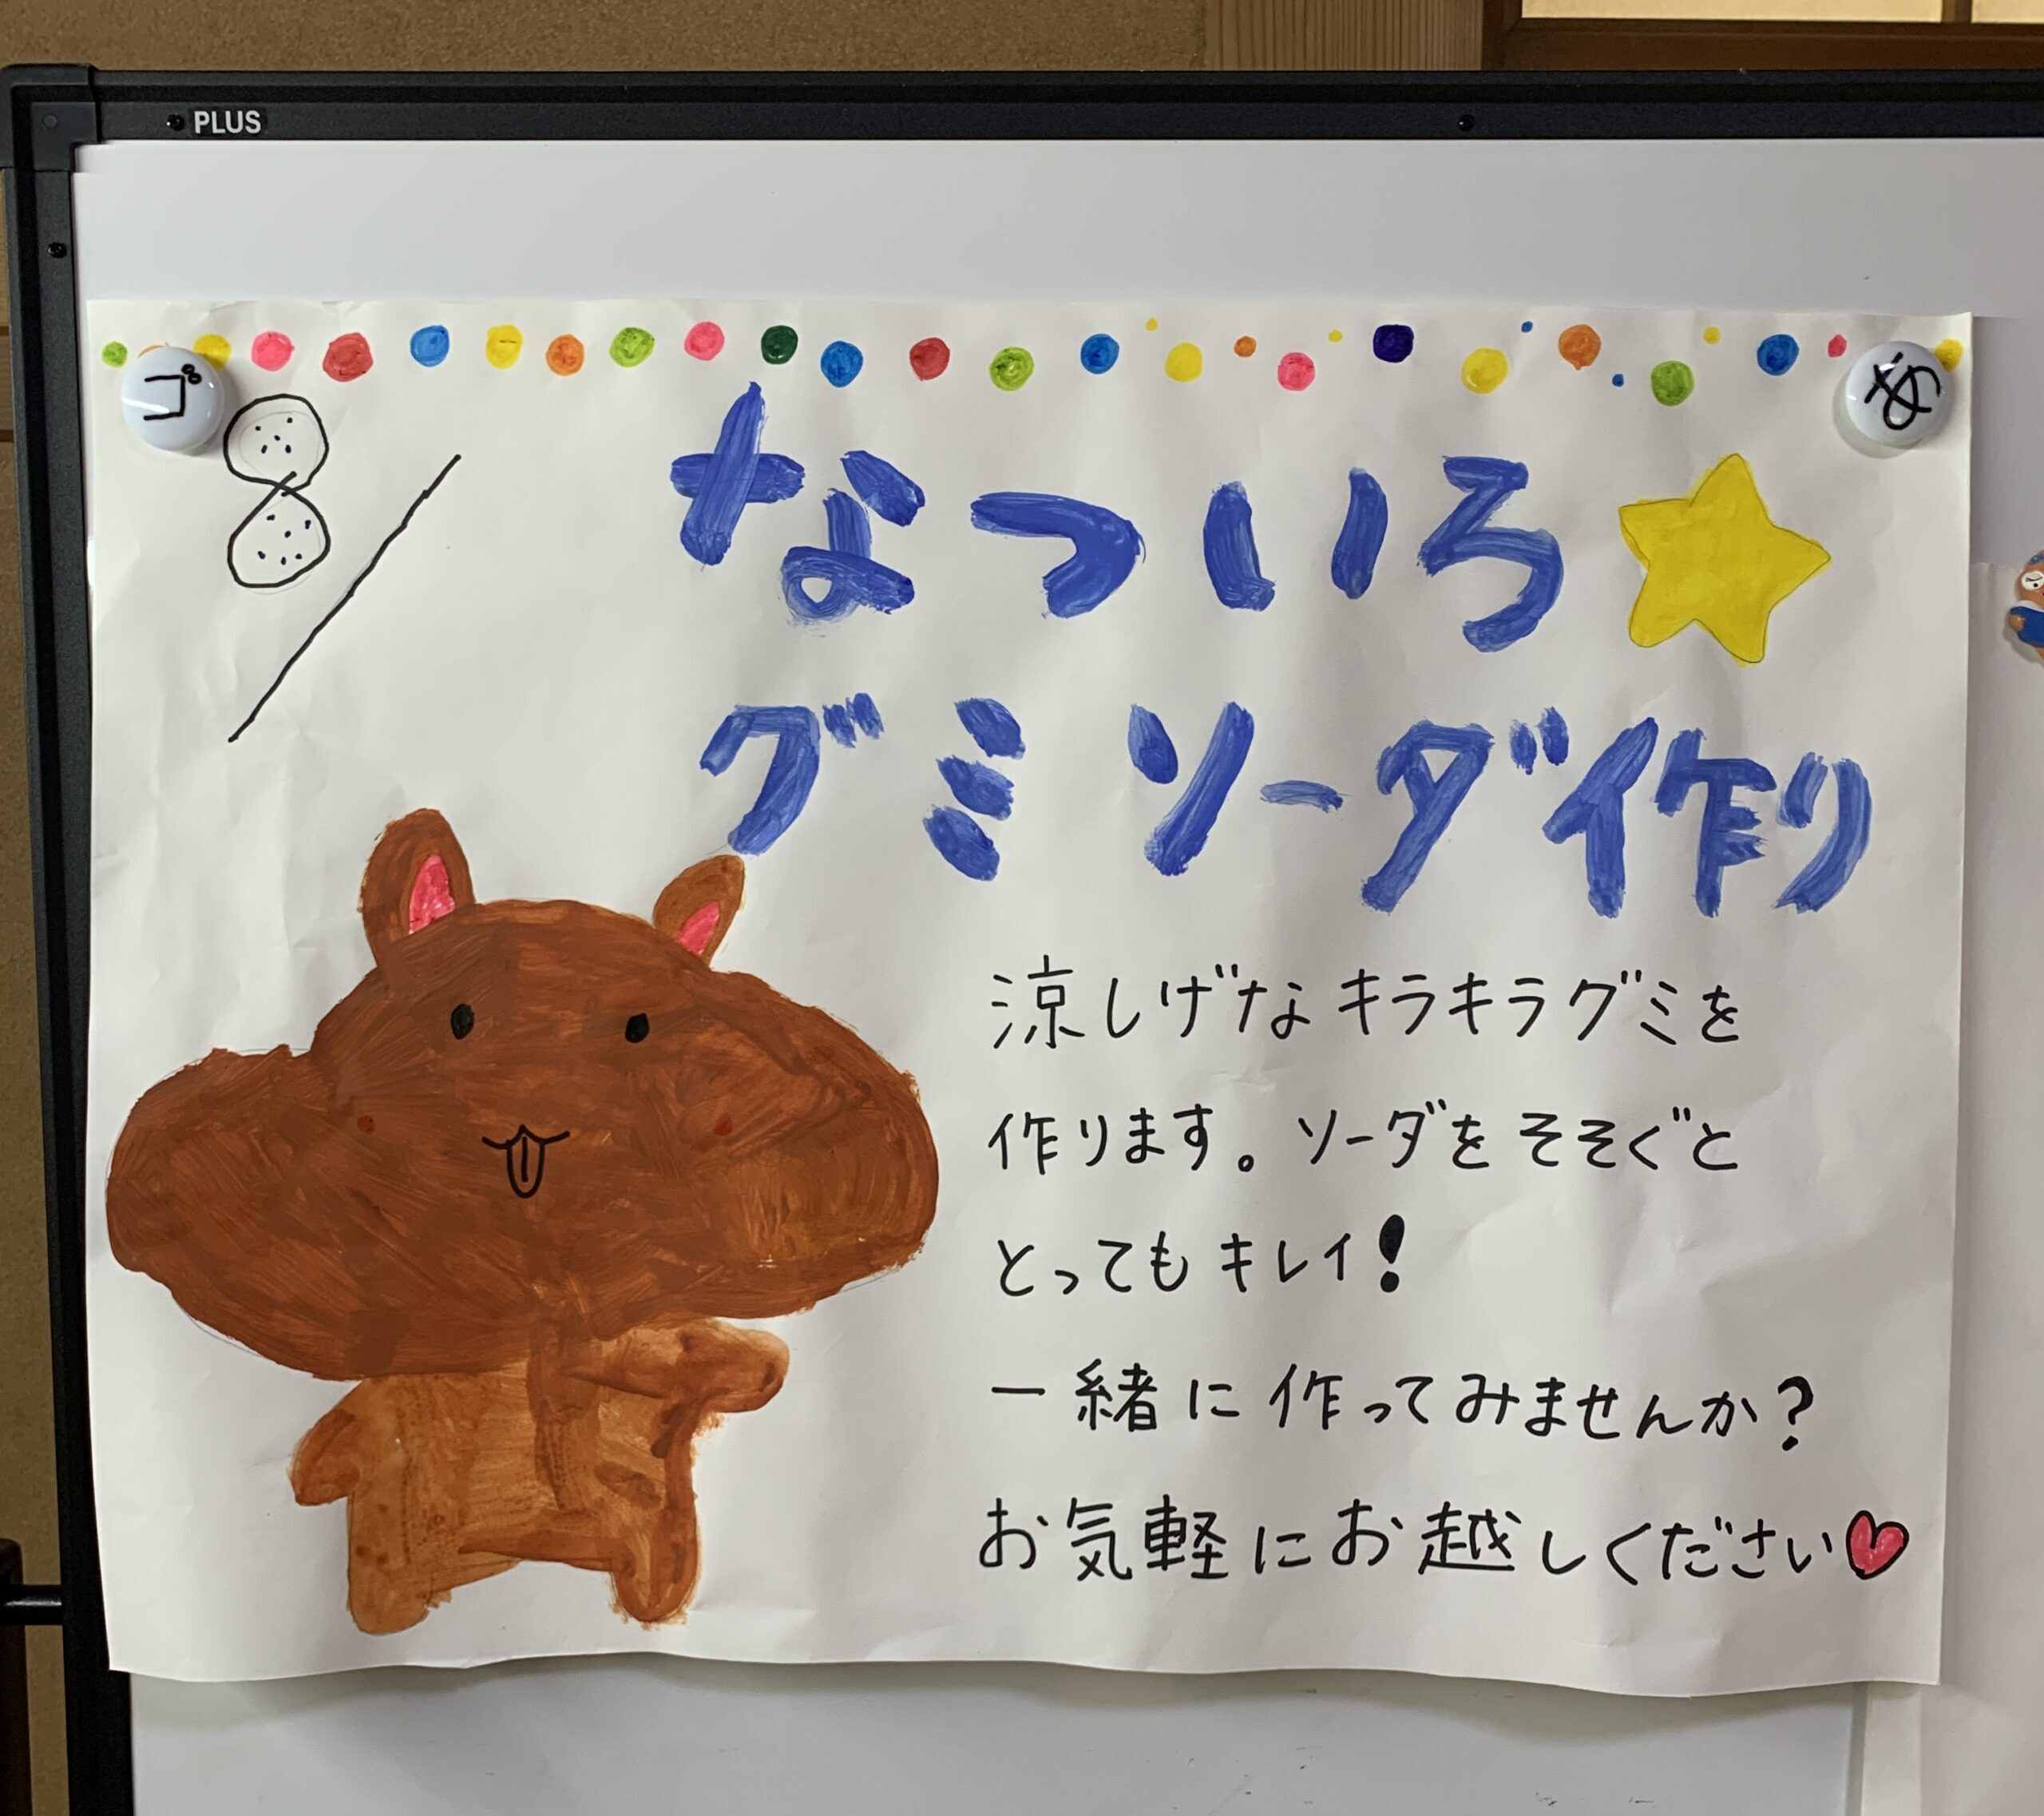 PLUS
ゴ
め
8/
なついろ
グミソーダ作り
涼しげなキラキラグミを
作ります。ソーダをそそぐと
とってもキレイ!
一緒に作ってみませんか?
お気軽にお越しください